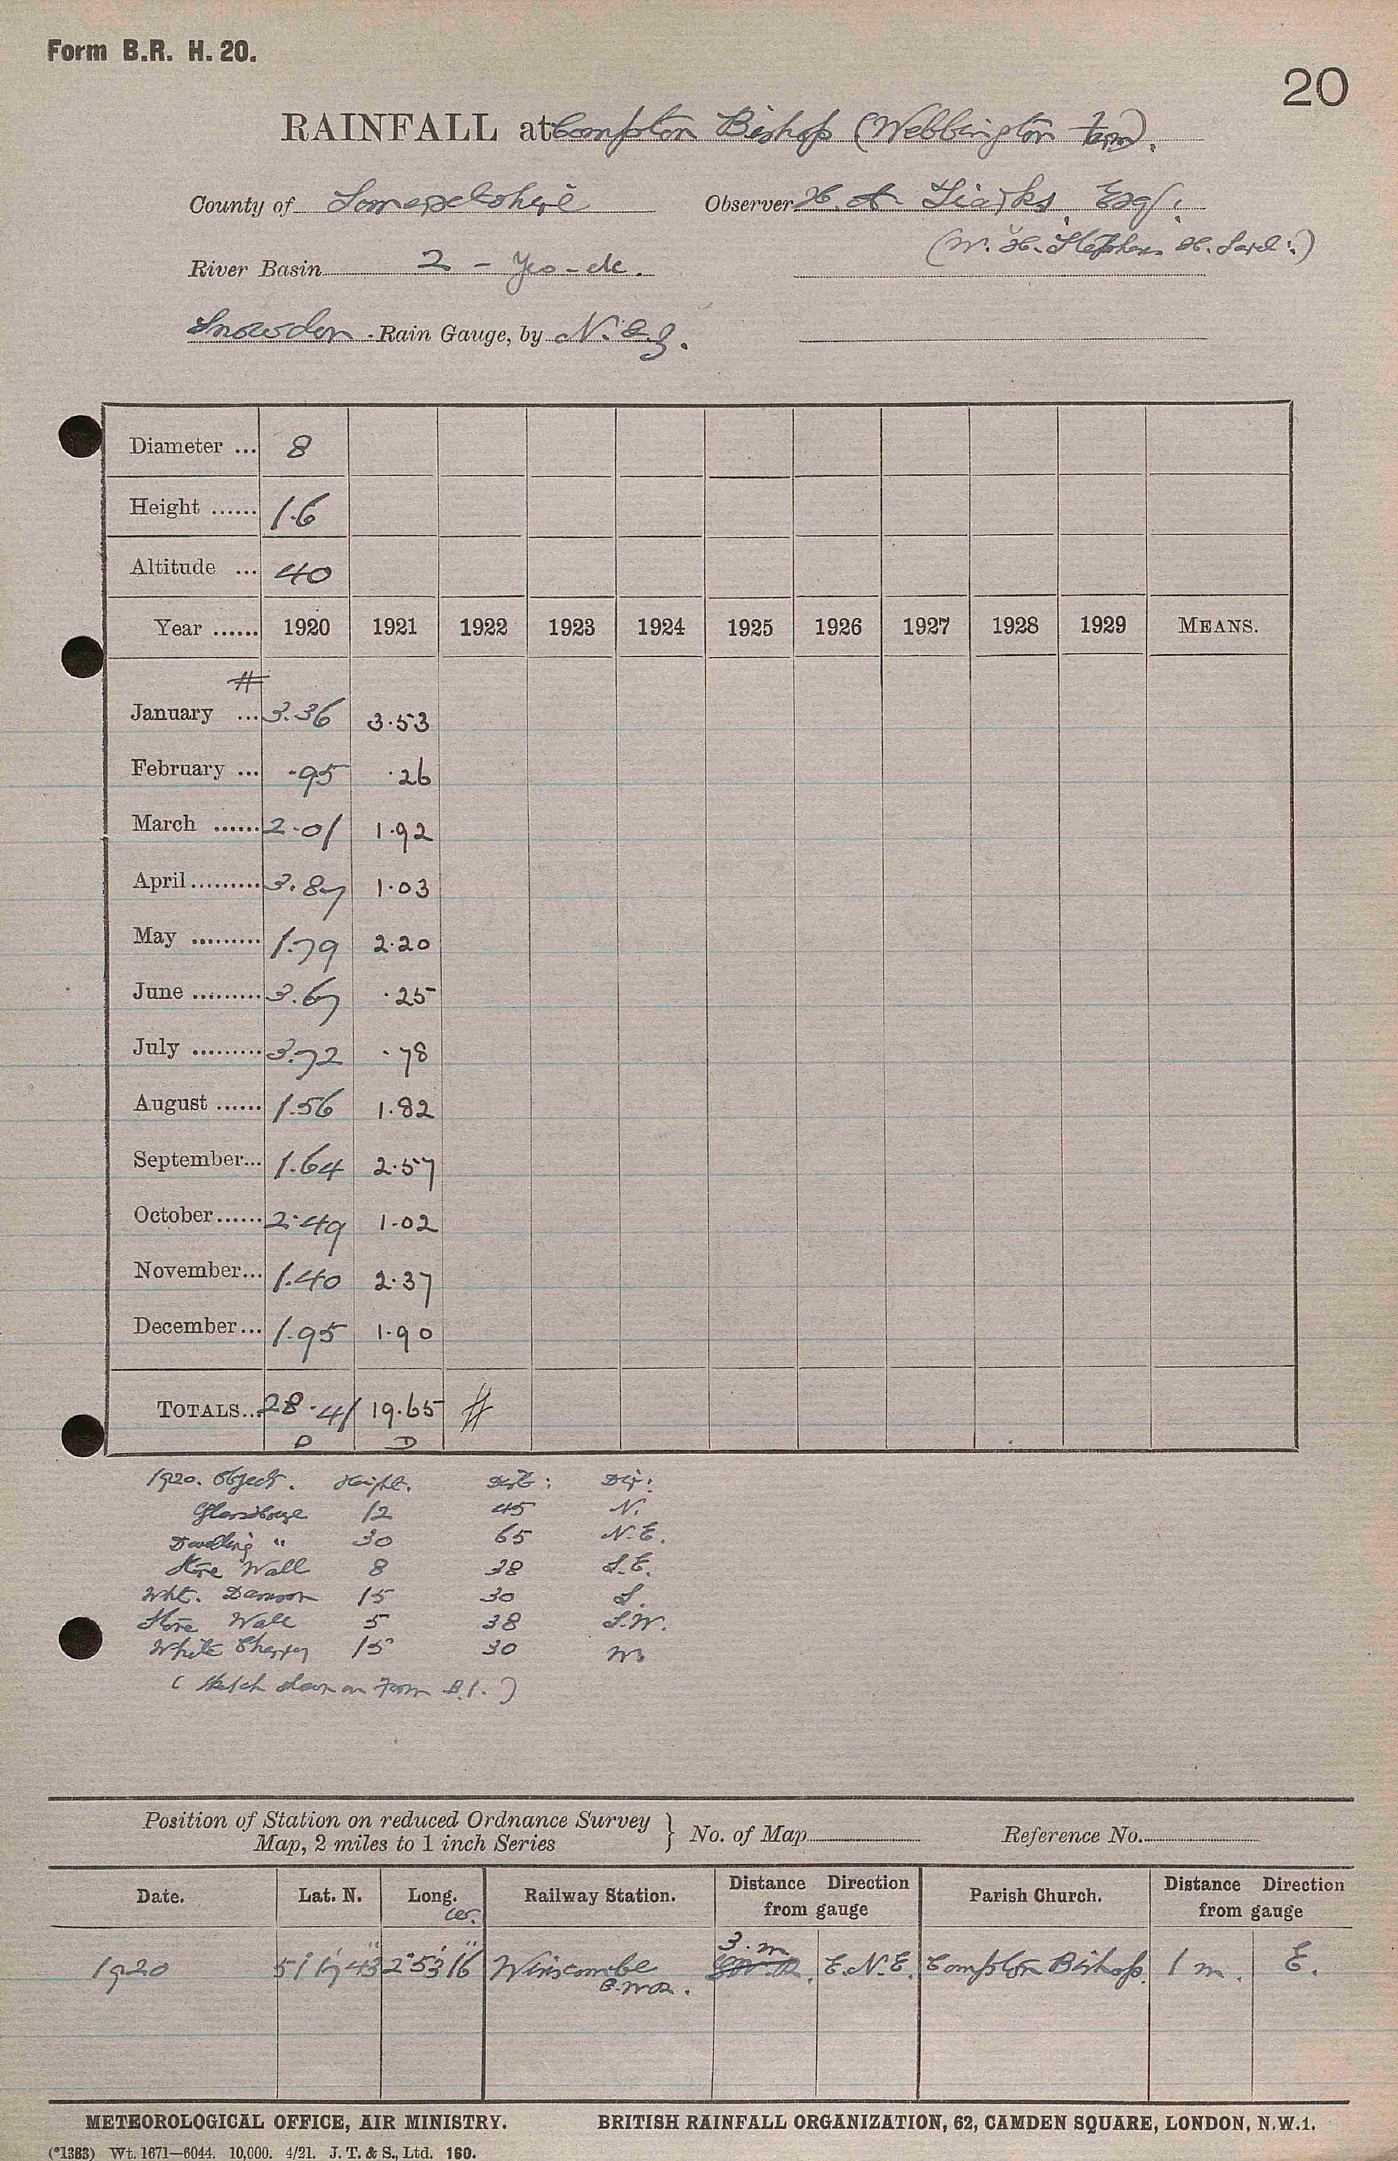 Form B.R. H. 20.
20
RAINFALL at Compton Bishop (Webbington Farm).
County of Somersetshire Observer H. A. Tiarks, Esq.
(W. H. Stephens H. Gard:)
River Basin 2 - Yeo - etc.
Snowdon Rain Gauge, by N. & Z.
Diameter ... 8
Height ...... 1.6
Altitude ... 40
Year ...... 1920 1921 1922 1923 1924 1925 1926 1927 1928 1929 MEANS.
#
January ... 3.36 3.53
February ... .95 .26
March ...... 2.01 1.92
April ......... 3.87 1.03
May ......... 1.79 2.20
June ......... 3.67 .25
July ......... 3.72 .78
August ...... 1.56 1.82
September... 1.64 2.57
October...... 2.49 1.02
November... 1.40 2.37
December... 1.95 1.90
TOTALS... 28.41 19.65 #
D D
1920. Object. Height. Dist: Dir:
Glasshouse 12 45 N.
Dwelling " 30 65 N.E.
Stone Wall 8 38 S.E.
Wht. Damson 15 30 S.
Stone Wall 5 38 S.W.
White Cherry 15 30 W.
(Sketch shown on Form B.1.)
Position of Station on reduced Ordnance Survey
Map, 2 miles to 1 inch Series } No. of Map Reference No.
Date. Lat. N. Long. W. Railway Station. Distance Direction from gauge Parish Church. Distance Direction from gauge
1920 51° 17' 43" 2° 53' 16" Winscombe G.W.R. 3 m. E.N.E. Compton Bishop. 1 m. E.
METEOROLOGICAL OFFICE, AIR MINISTRY. BRITISH RAINFALL ORGANIZATION, 62, CAMDEN SQUARE, LONDON, N.W.1.
(*1383) Wt. 1671—6044. 10,000. 4/21. J. T. & S., Ltd. 160.